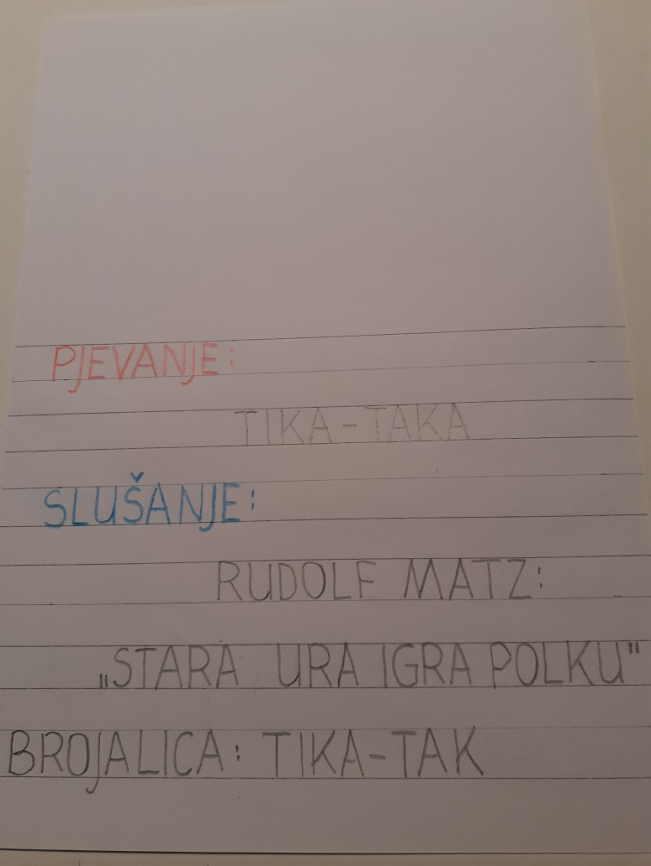 PJEVANJE:
TIKA-TAKA
SLUŠANJE:
RUDOLF MATZ:
„STARA URA IGRA POLKU"
BROJALICA: TIKA-TAK